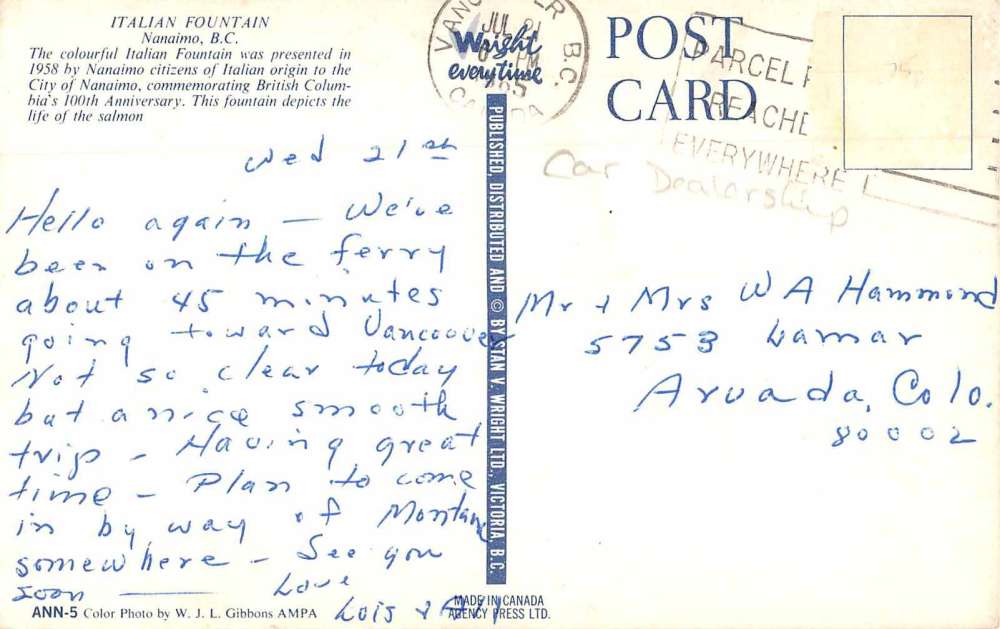 ITALIAN FOUNTAIN
Nanaimo, B.C.
The colourful Italian Fountain was presented in
1958 by Nanaimo citizens of Italian origin to the
City of Nanaimo, commemorating British Colum-
bia's 100th Anniversary. This fountain depicts the
life of the salmon
Wed 21st
Hello again – We've
been on the ferry
about 45 minutes
going toward Vancouver
Not so clear today
but a nice smooth
trip – Having great
time – Plan to come
in by way of Montana
somewhere – See you
soon —— Love
Lois &
ANN-5 Color Photo by W. J. L. Gibbons AMPA
JUL 21
PM
B.C.
CANADA
Wright
everytime
PUBLISHED, DISTRIBUTED AND © BY STAN V. WRIGHT LTD., VICTORIA, B.C.
MADE IN CANADA
AGENCY PRESS LTD.
POST
CARD
PARCEL P
REACHE
EVERYWHERE
Car Dealorship
Mr + Mrs W A Hammond
5753 Lamar
Arvada, Colo.
80002